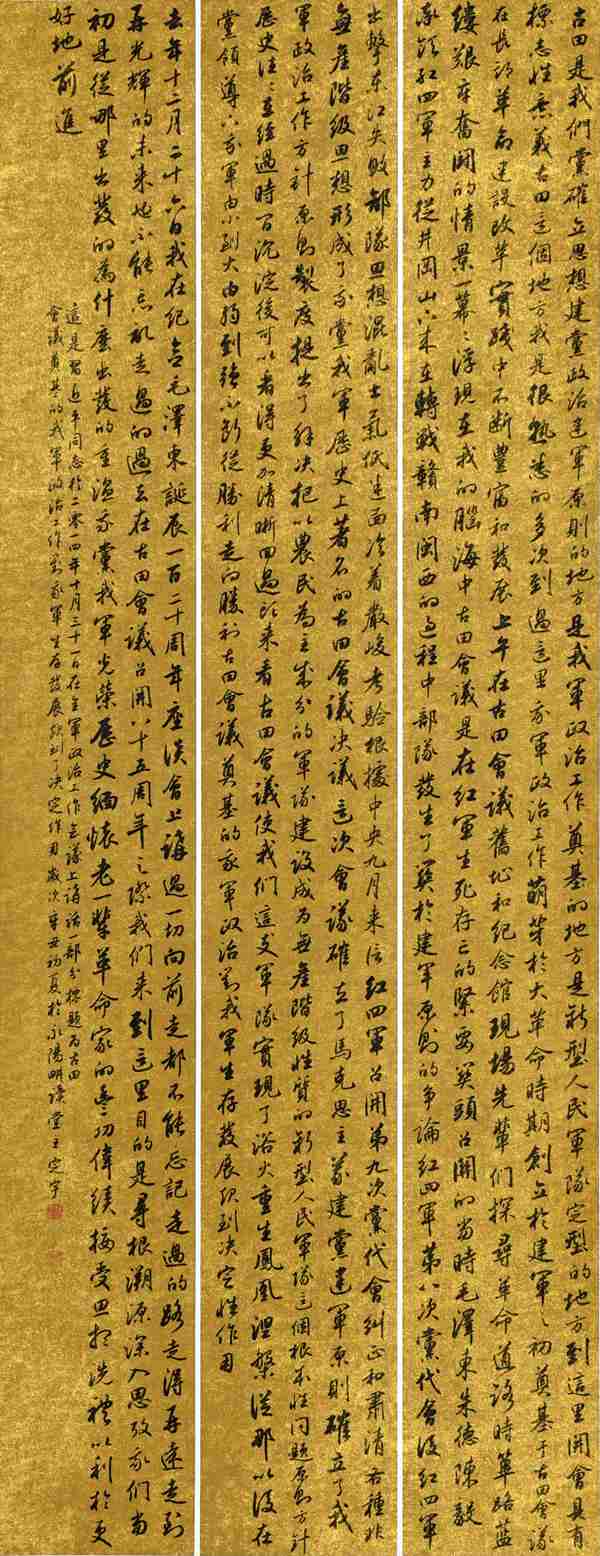 古田是我們黨確立思想建黨政治建軍原則的地方是我軍政治工作奠基的地方是新型人民軍隊定型的地方到這里開會具有
標志性意義古田這個地方我是很熟悉的多次到過這里我軍政治工作萌芽於大革命時期創立於建軍之初奠基于古田會議
在長期革命建設改革實踐中不斷豐富和發展上午在古田會議舊址和紀念館現場先輩們探尋革命道路時篳路藍
縷艱辛奮鬥的情景一幕幕浮現在我的腦海中古田會議是在紅軍生死存亡的緊要關頭召開的當時毛澤東朱德陳毅
率領紅四軍主力從井岡山下來在轉戰贛南閩西的過程中部隊發生了關於建軍原則的争論紅四軍第八次黨代會後紅四軍
出擊東江失敗部隊思想混亂士氣低迷面臨着嚴峻考驗根據中央九月来信紅四軍召開第九次黨代會糾正和肅清各種非
無産階級思想形成了我黨我軍歷史上著名的古田會議决議這次會議確立了馬克思主義建黨建軍原則確立了我
軍政治工作方針原則製度提出了解决把以農民為主成分的軍隊建設成為無産階級性質的新型人民軍隊這個根本性問題原則方針
歷史往往在經過時間沉淀後可以看得更加清晰回過頭來看古田會議使我們這支軍隊實現了浴火重生鳳凰涅槃從那以後在
黨領導下我軍由小到大由弱到强不斷從勝利走向勝利古田會議奠基的我軍政治對我軍生存發展起到决定性作用
去年十二月二十六日我在紀念毛澤東誕辰一百二十周年座談會上講過一切向前走都不能忘記走過的路走得再遠走到
再光輝的未来也不能忘記走過的過去在古田會議召開八十五周年之際我們来到這里目的是尋根溯源深入思考我們當
初是從哪里出發的為什麽出發的重温我黨我軍光榮歷史緬懷老一輩革命家的豐功偉績接受思想洗禮以利於更
好地前進
這是習近平同志於二零一四年十月三十一日在全軍政治工作會議上講話一部分標題為古田
會議奠基的我軍政治工作對我軍生存發展起到了决定作用歲次辛丑初夏於永陽明讀堂主定宇